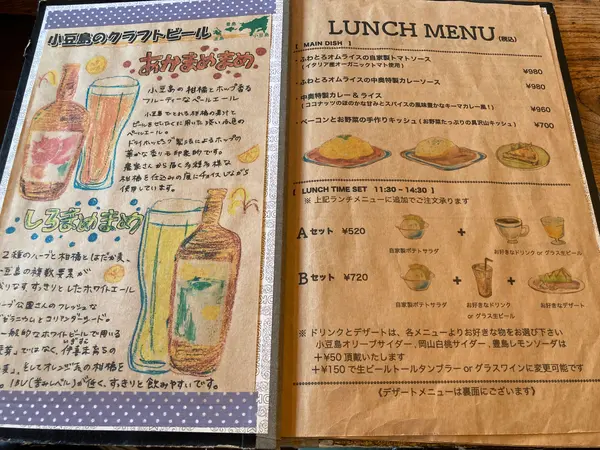 小豆島のクラフトビール
あかまめまめ
小豆島の柑橘とホップ香る
フルーティーなペールエール
小豆島でとれる柑橘の
ドライホッピング製法によるホップの
華やかな香りも印象的です。
農家さんから届く多種多様な
柑橘を仕込みの度にチョイスしながら
使用しています。
しろまめまめ
2種のハーブと柑橘とはだか麦、
小豆島の
なすっきりとしたホワイトエール
ーブ公園さんのフレッシュな
ゼラニウムとコリアンダーシード。
一般的なホワイトビールで用いる
ではなく、伊喜末育ちの
いぎすえ
麦」、そしてオレンジ系の柑橘を
IBU(苦みレベル)が低く、すっきりと飲みやすいです。
LUNCH MENU (税込)
[ MAIN DISH ]
・ふわとろオムライスの自家製トマトソース
(イタリア産オーガニックトマト使用) ¥980
・ふわとろオムライスの中奥特製カレーソース
¥980
・中奥特製カレー & ライス
(ココナッツのほのかな甘みとスパイスの風味豊かなキーマカレー風!) ¥980
・ベーコンとお野菜の手作りキッシュ(お野菜たっぷりの具沢山キッシュ) ¥700
[ LUNCH TIME SET 11:30 ~ 14:30 ]
※ 上記ランチメニューに追加でご注文承ります
Aセット ¥520
自家製ポテトサラダ
お好きなドリンク or グラス生ビール
Bセット ¥720
自家製ポテトサラダ
お好きなドリンク
or グラス生ビール
お好きなデザート
※ ドリンクとデザートは、各メニューよりお好きな物をお選び下さい
小豆島オリーブサイダー、岡山白桃サイダー、豊島レモンソーダは
+¥50 頂戴いたします
+¥150 で生ビールトールタンブラー or グラスワインに変更可能です
《デザートメニューは裏面にございます》